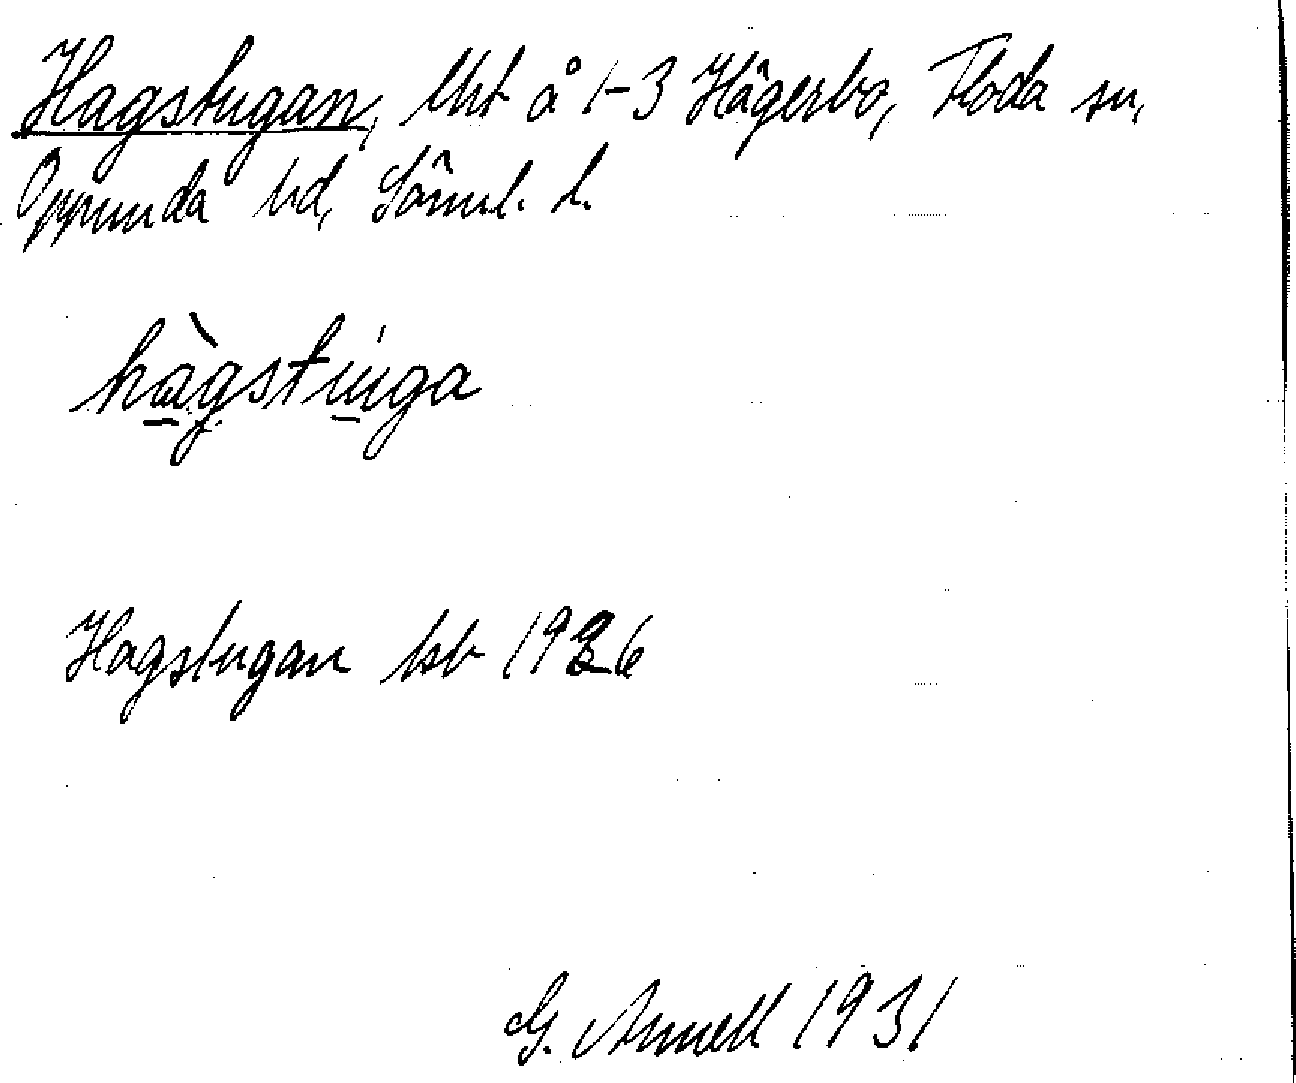 Hagstugan, lht å 1-3 Hägerbo, Floda sn,
Oppunda hd, Söml. l.
hàgstúga
Hagstugan hsb 1926
G. Arnell 1931